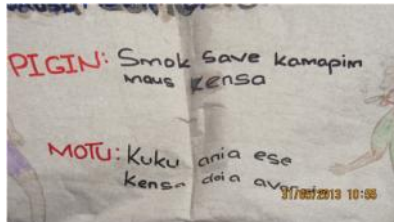 PIGIN: Smok save kamapim
maus kensa
MOTU: Kuku ania ese
kensa deia
31/05/2013 10:55